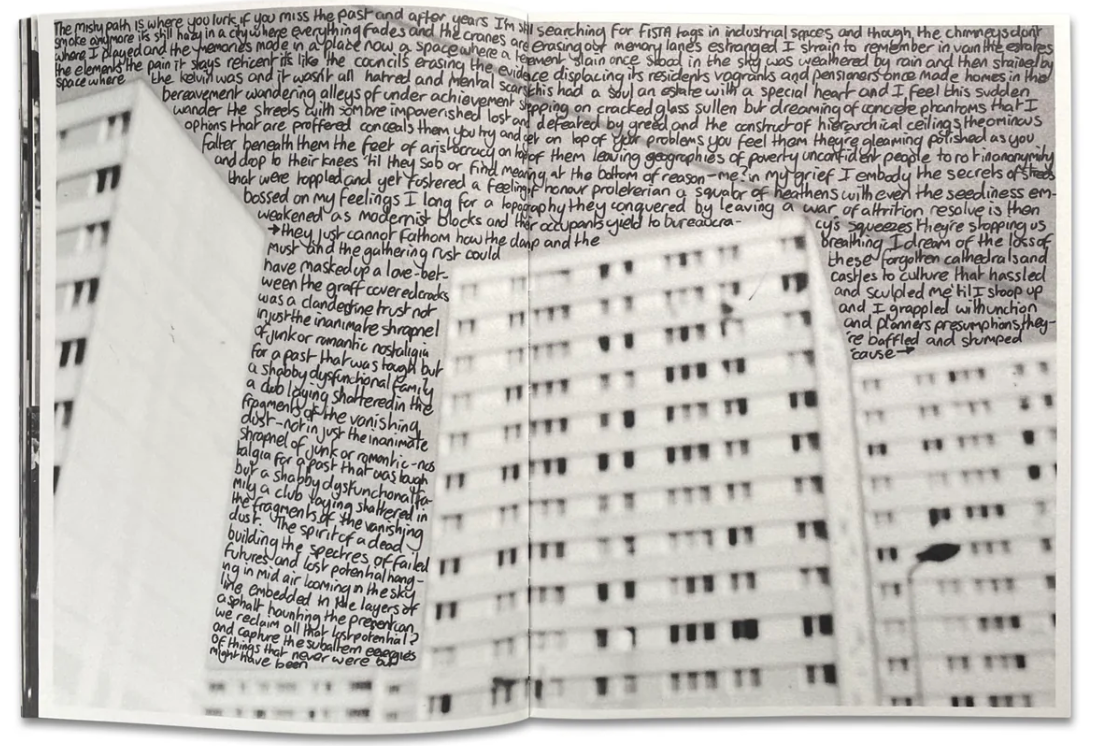 The misty path is where you lurk if you miss the past and after years I'm still searching for FISTA tags in industrial spaces and though the chimneys don't
smoke anymore its still hazy in a city where everything fades and the cranes are erasing our memory lanes estranged I strain to remember in vain the estates
where I played and the memories made in a place now a space where a tenement slain once stood in the sky was weathered by rain and then stained by
the elements the pain it stays reticent it's like the councils erasing the evidence displacing its residents vagrants and pensioners once made homes in the
space where the kelvin was and it wasn't all hatred and mental scars this had a soul an estate with a special heart and I feel this sudden
bereavement wandering alleys of under achievement stepping on cracked glass sullen but dreaming of concrete phantoms that I
wander the streets with sombre impoverished lost and defeated by greed and the construct of hierarchical ceilings the ominous
options that are proffered conceals them you try and get on top of your problems you feel them they're gleaming polished as you
falter beneath them the feet of aristocracy on top of them leaving geographies of poverty unconfident people to rot in anonymity
and drop to their knees 'til they sob or find meaning at the bottom of reason-me? in my grief I embody the secrets of
that were toppled and yet fostered a feeling honour proleterian a squalor of heathens with even the seediness em-
bossed on my feelings I long for a topography they conquered by leaving a war of attrition resolve is then
weakened as modernist blocks and their occupants yield to bureaucra-
cys squeezes they're stopping us
breathing I dream of the loss of
these forgotten cathedrals and
castles to culture that hassled
and sculpted me 'til I stoop up
and I grappled with unction
and planners presumptions they-
're baffled and stumped
'cause →
→ they just cannot fathom how the damp and the
must and the gathering rust could
have masked up a love-bet-
ween the graff covered cracks
was a clandestine trust not
in just the inanimate shrapnel
of junk or romantic nostaligia
for a past that was tough but
a shabby dysfunctional family
a club laying shattered in the
fragments of the vanishing
dust-not in just the inanimate
shrapnel of junk or romantic-nos
talgia for a past that was tough
but a shabby dysfunctional fa-
mily a club laying shattered in
the fragments of the vanishing
dust. The spirit of a dead
building the spectres of failed
futures and lost potential hang-
ing in mid air looming in the sky
line embedded in the layers of
asphalt haunting the present can
we reclaim all that lost potential?
and capture the subaltern energies
of things that never were but
might have been